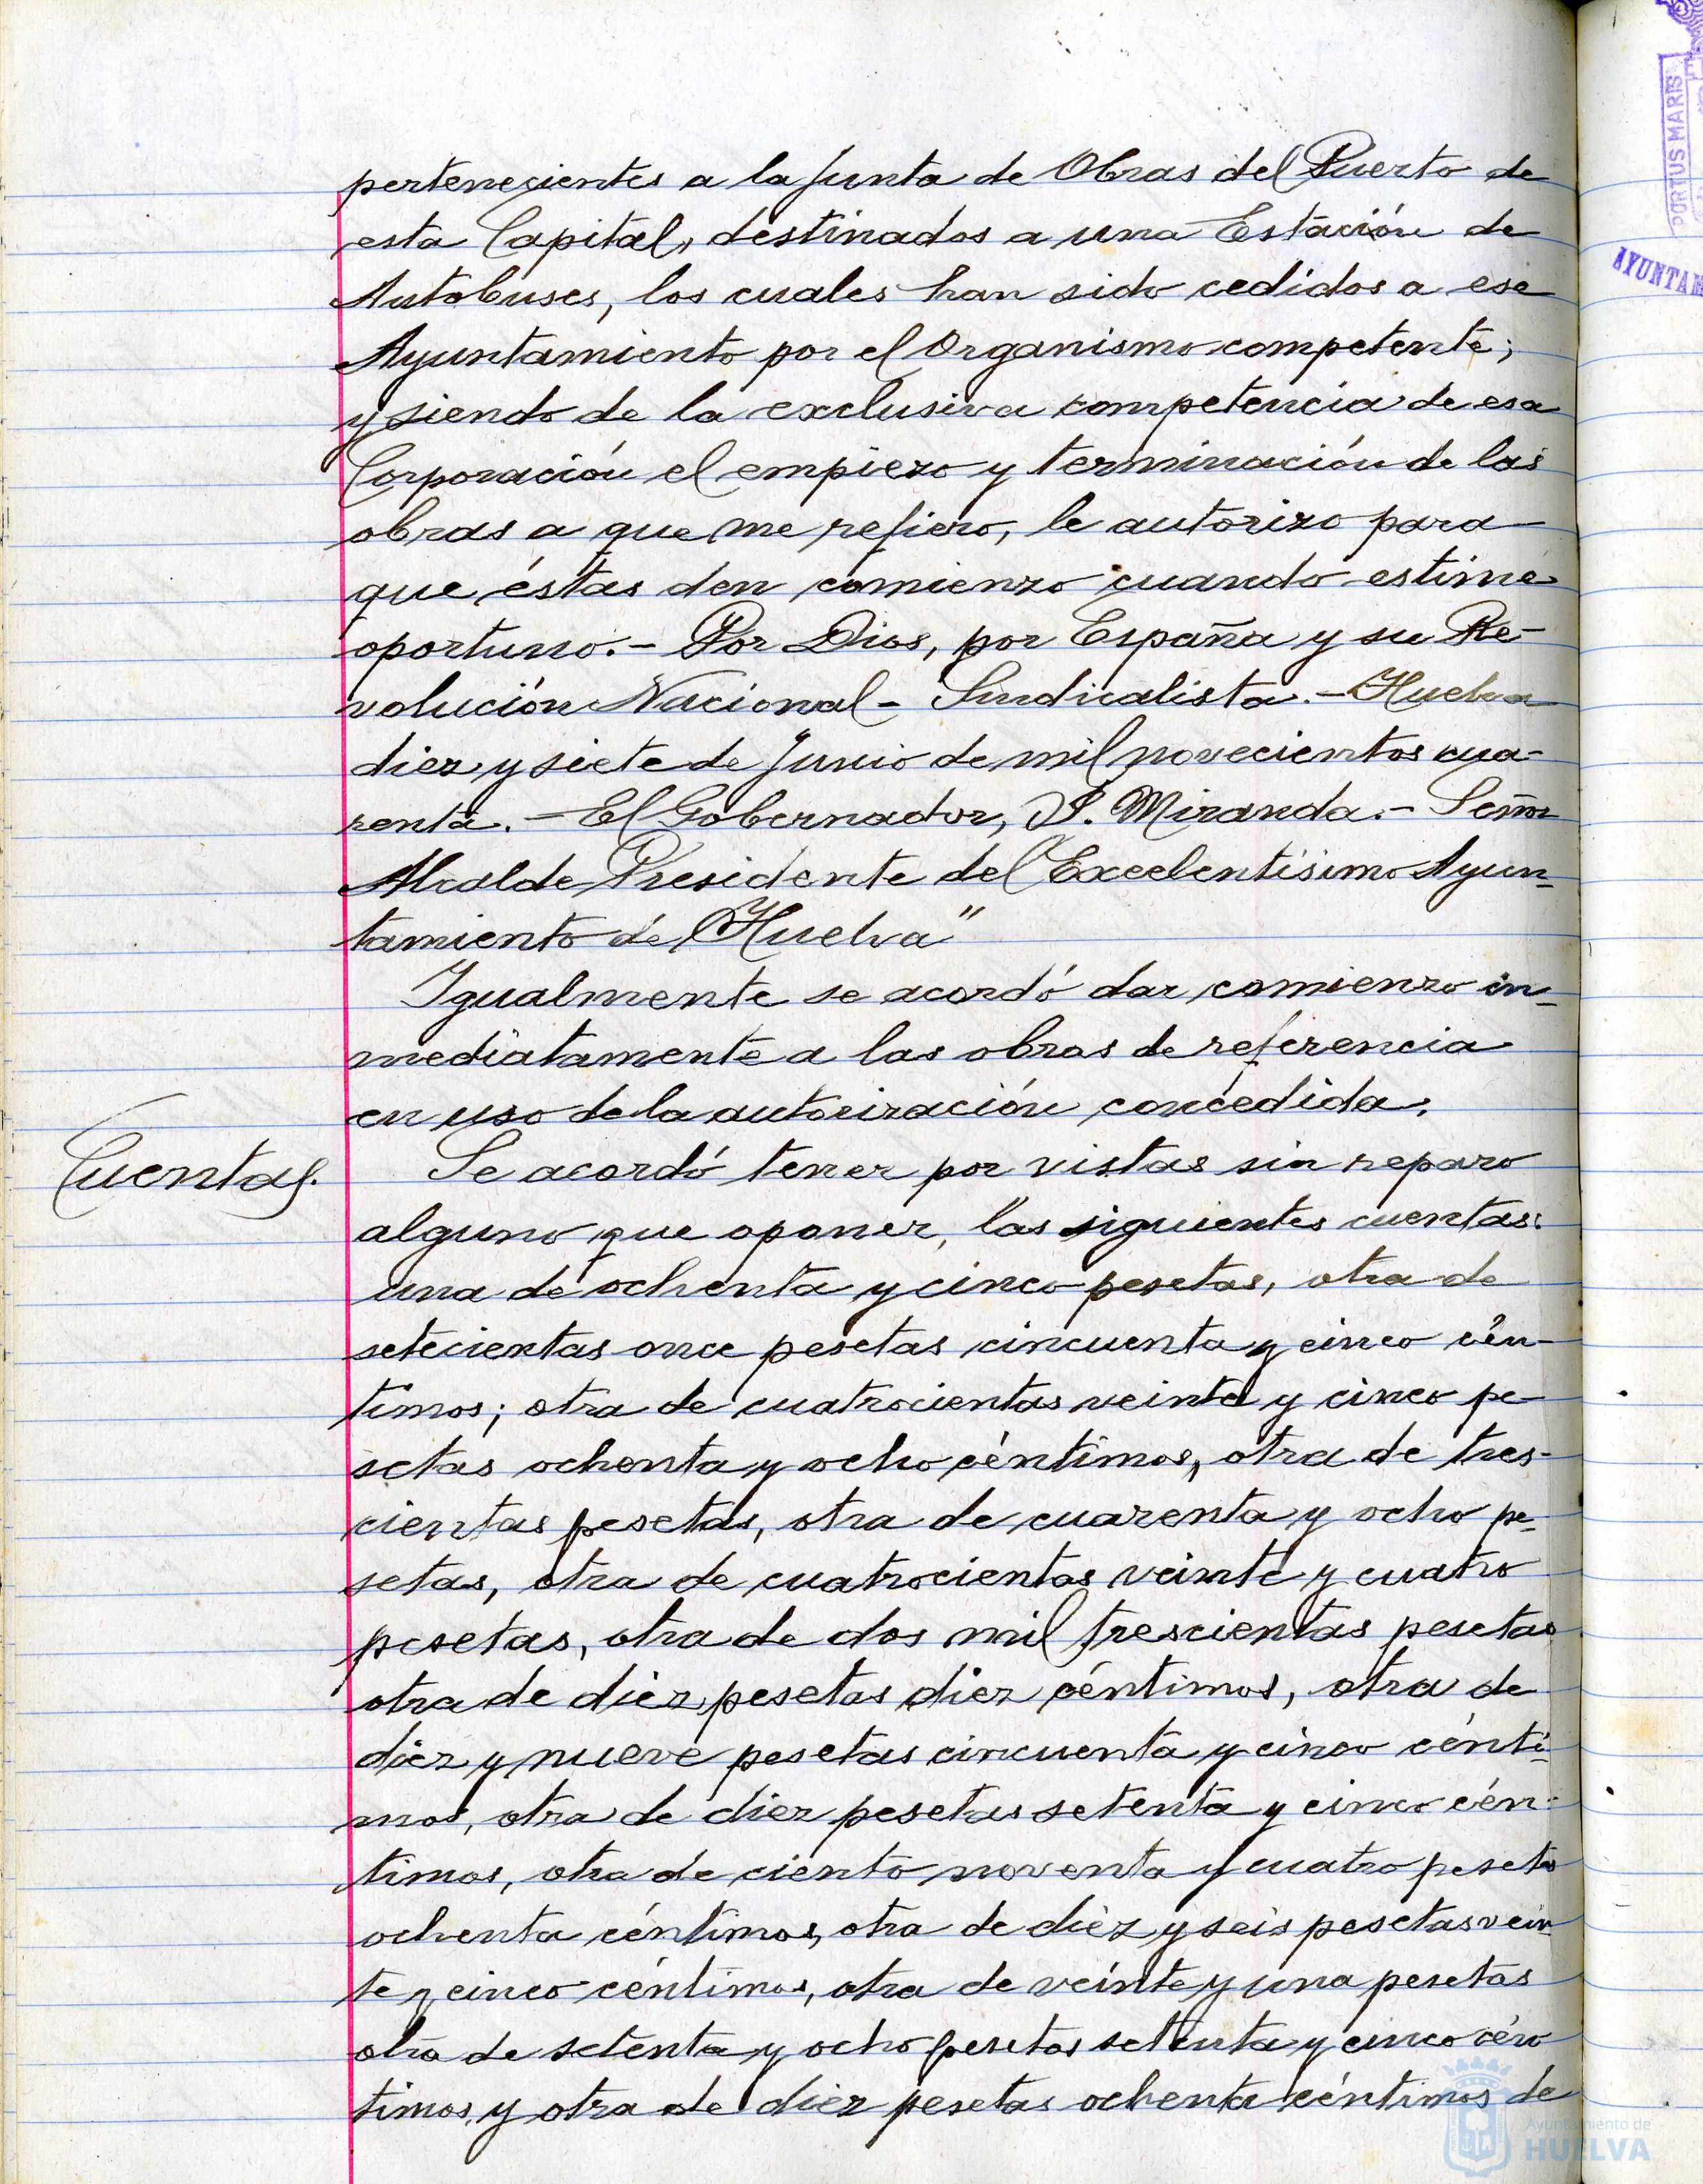 pertenecientes a la Junta de Obras del Puerto de
esta Capital, destinados a una Estación de
Autobuses, los cuales han sido cedidos a ese
Ayuntamiento por el Organismo competente;
y siendo de la exclusiva competencia de esa
Corporación el empiezo y terminación de las
obras a que me refiero, le autorizo para
que éstas den comienzo cuando estime
oportuno.- Por Dios, por España y su Re-
volución Nacional-Sindicalista.- Huelva
diez y siete de Junio de mil novecientos cua-
renta.- El Gobernador, P. Miranda.- Señor
Alcalde Presidente del Excelentísimo Ayun-
tamiento de Huelva"
Igualmente se acordó dar comienzo in-
mediatamente a las obras de referencia
en uso de la autorización concedida.
Cuentas. Se acordó tener por vistas sin reparo
alguno que oponer, las siguientes cuentas:
una de ochenta y cinco pesetas, otra de
setecientas once pesetas cincuenta y cinco cén-
timos; otra de cuatrocientas veinte y cinco pe-
setas ochenta y ocho céntimos, otra de tres-
cientas pesetas, otra de cuarenta y ocho pe-
setas, otra de cuatrocientas veinte y cuatro
pesetas, otra de dos mil trescientas pesetas
otra de diez pesetas diez céntimos, otra de
diez y nueve pesetas cincuenta y cinco cénti-
mos, otra de diez pesetas setenta y cinco cén-
timos, otra de ciento noventa y cuatro pesetas
ochenta céntimos, otra de diez y seis pesetas vein
te y cinco céntimos, otra de veinte y una pesetas
otra de setenta y ocho pesetas setenta y cinco cén
timos, y otra de diez pesetas ochenta céntimos de
PORTUS MARIS
AYUNTAM
Ayuntamiento de
HUELVA